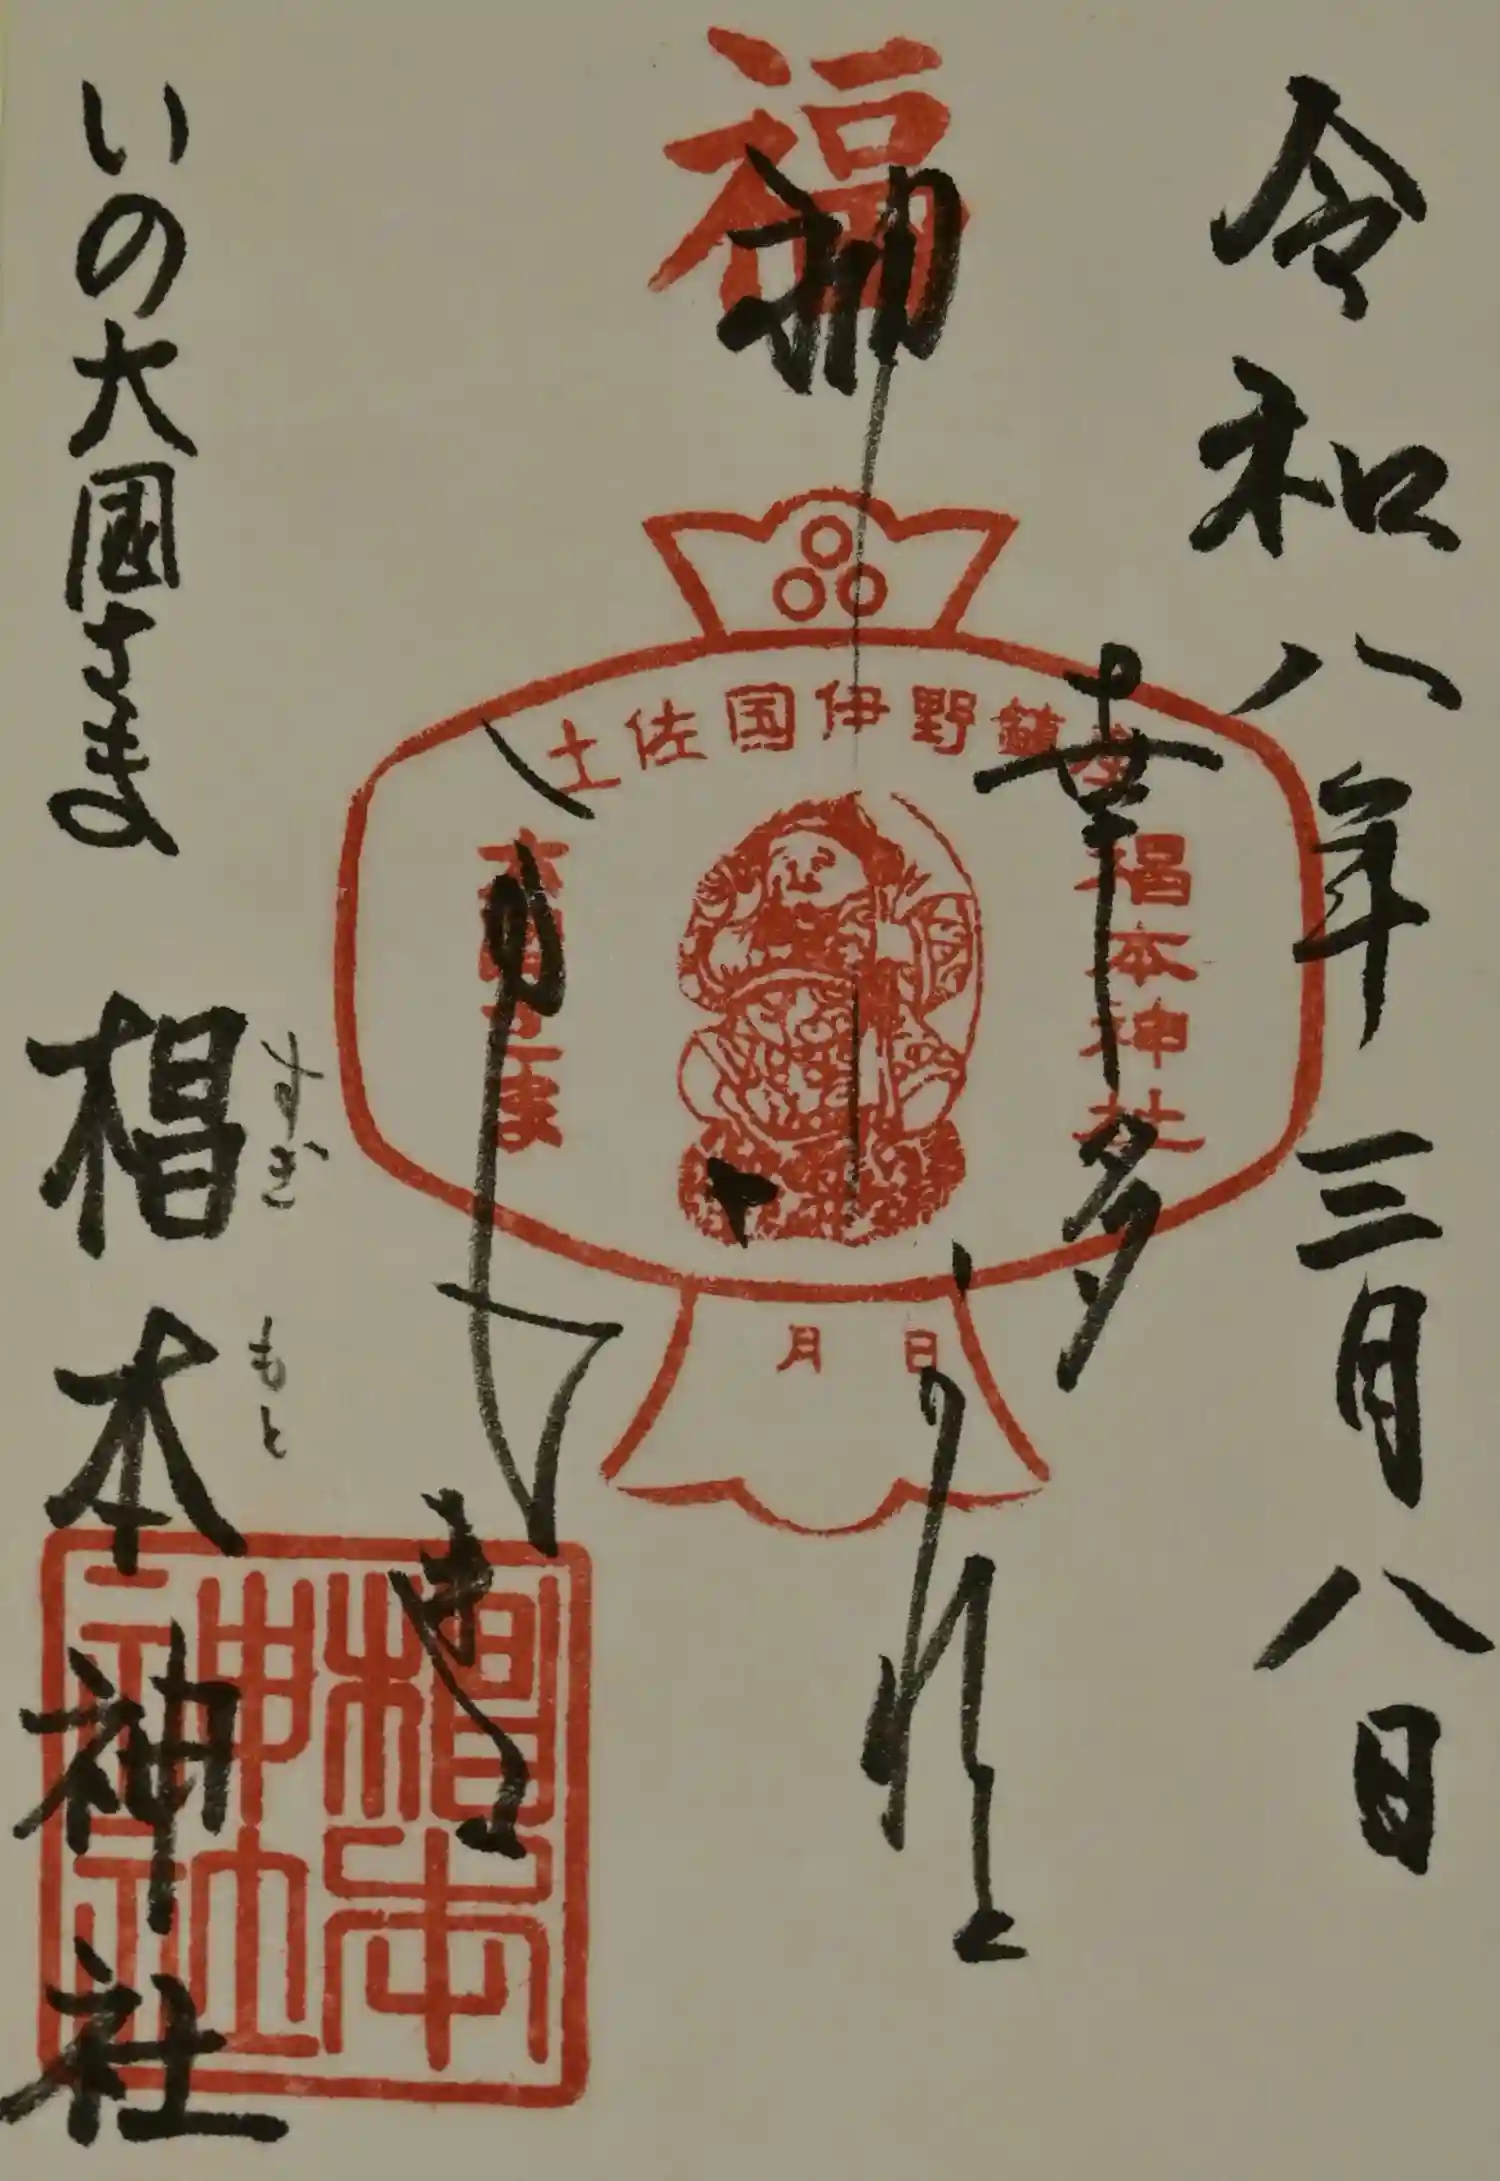 令和八年三月八日
幸多
福
土佐国伊野鎮座
椙本神社
大国さま
月 日
いの大国さま
椙本神社
すぎもと
椙本神社